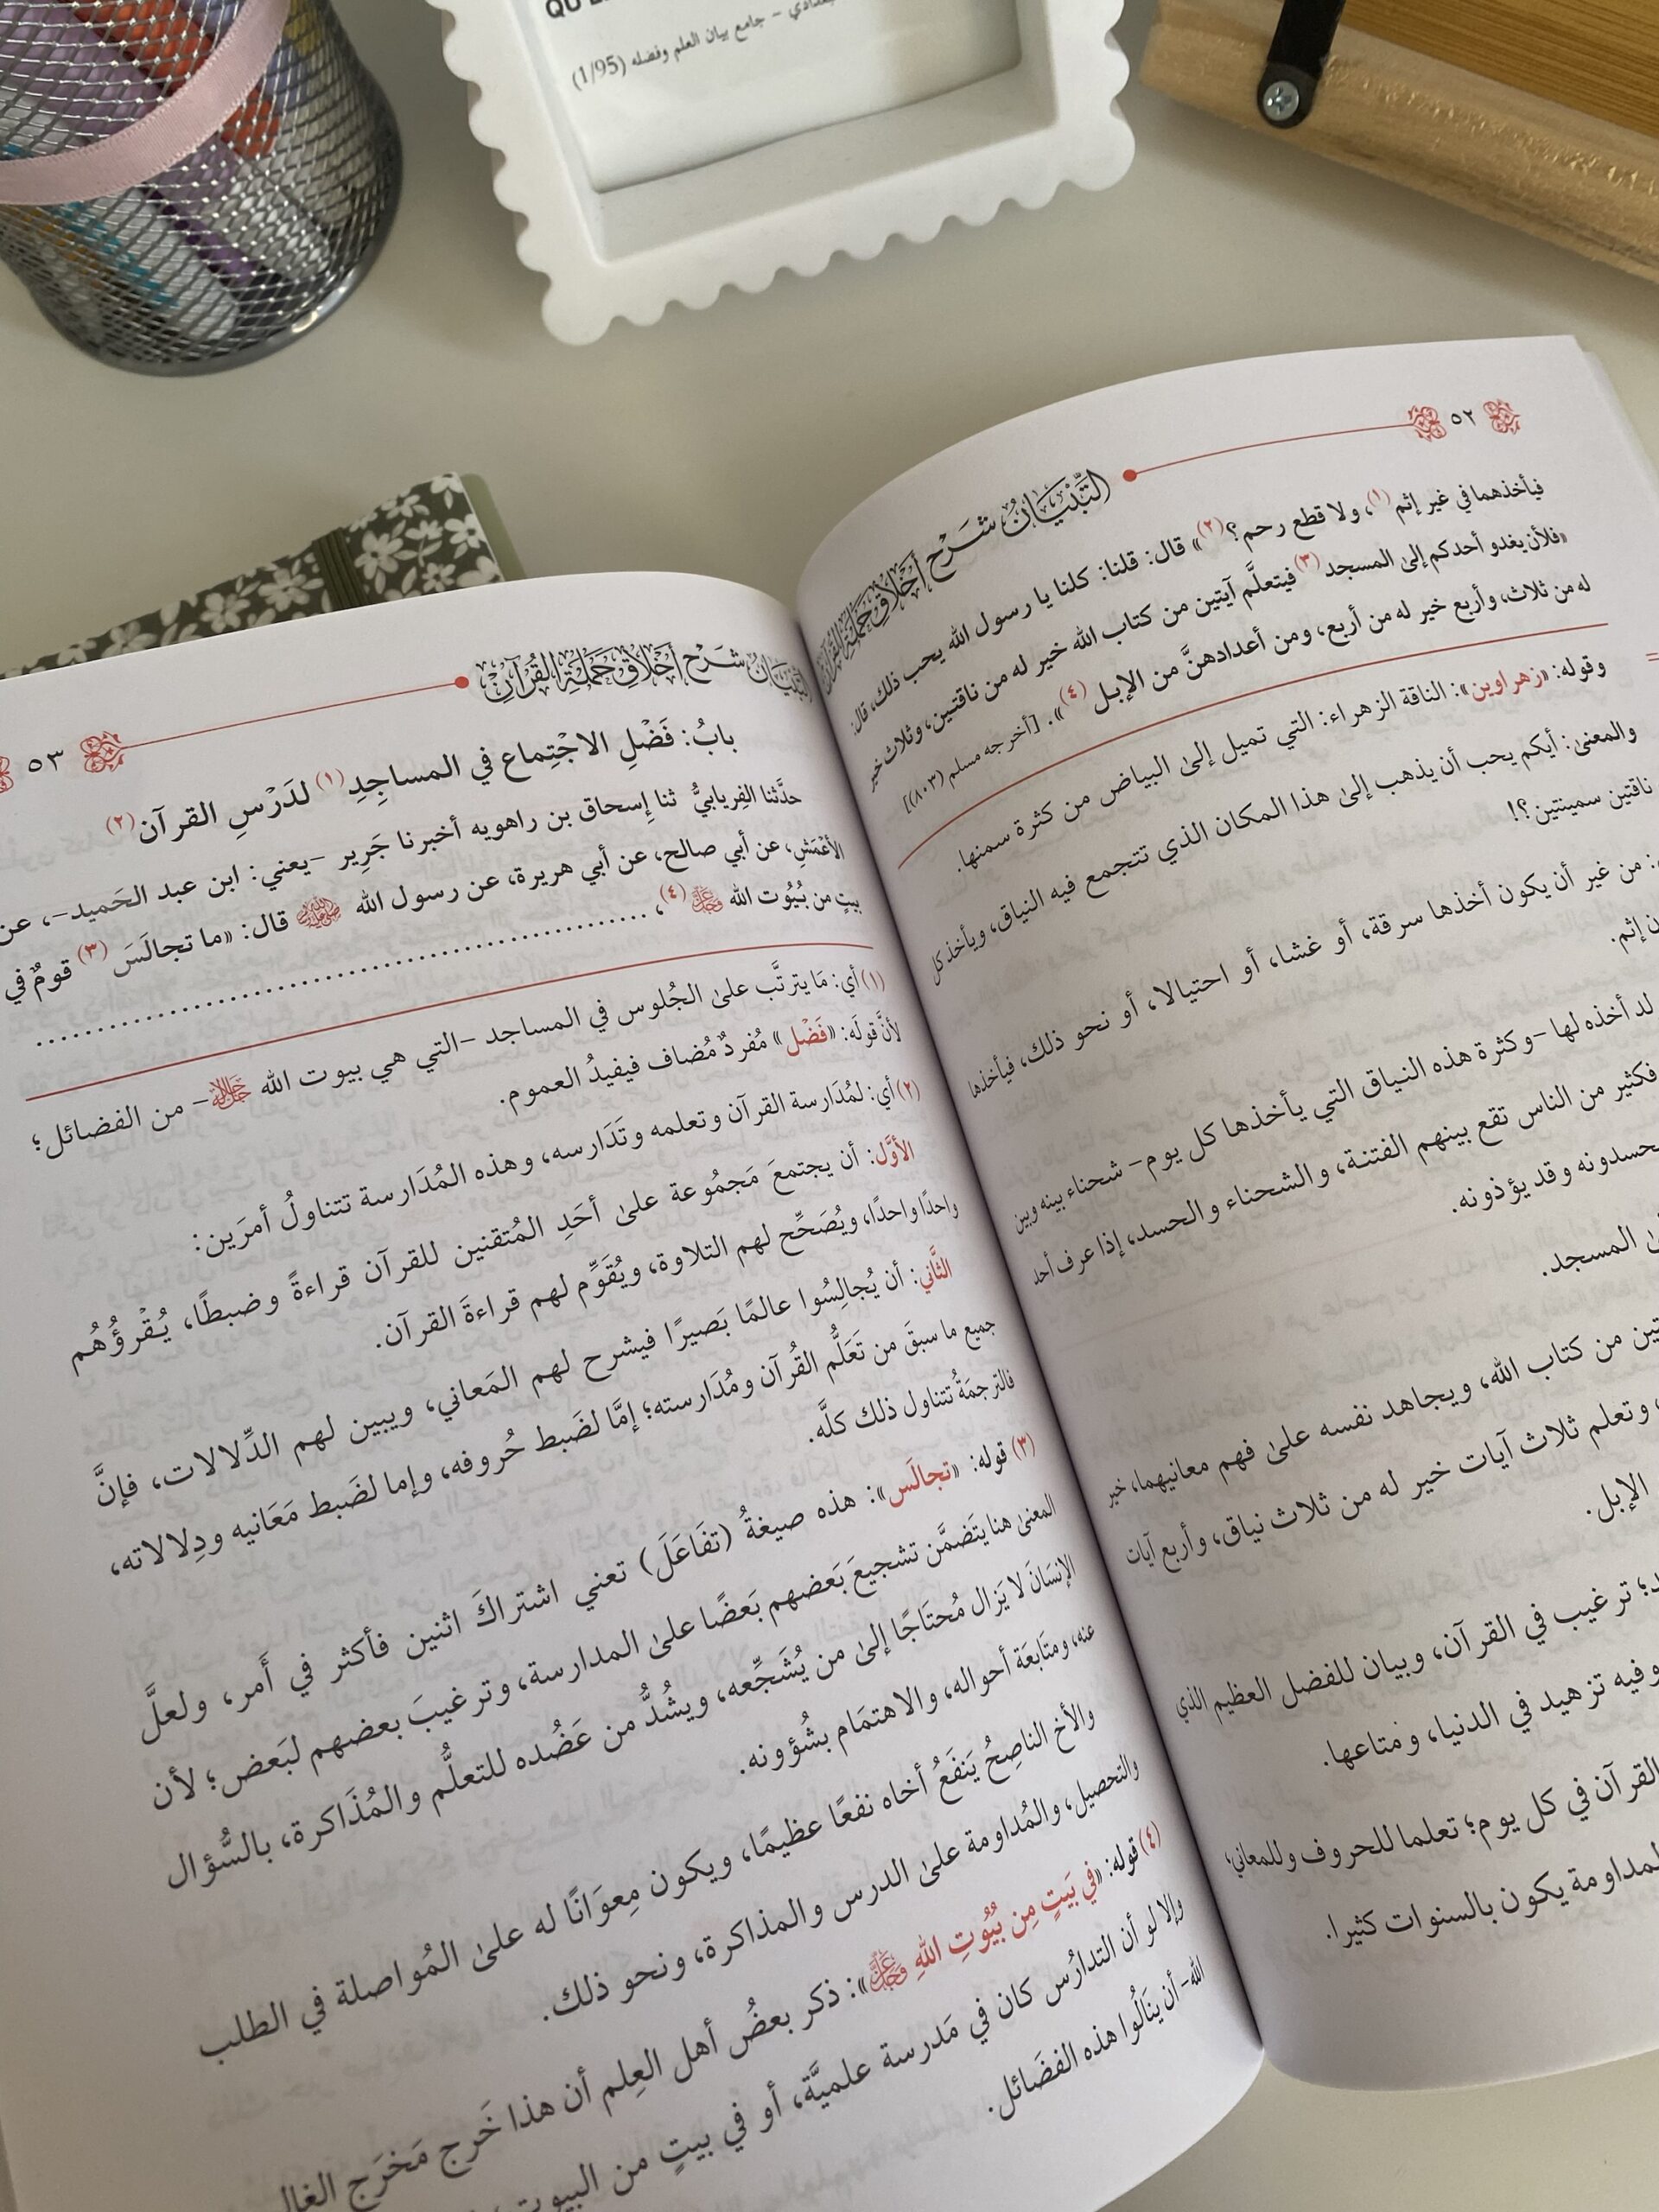 QU
جامع بيان العلم وفضله (1/95)
٥٢
التبيان شرح أخلاق حملة القرآن
فيأخذهما في غير إثم (١)، ولا قطع رحم؟ (٢)» قال: قلنا: كلنا يا رسول الله يحب ذلك، قال:
«فلأن يغدو أحدكم إلى المسجد (٣) فيتعلَّم آيتين من كتاب الله خير له من ناقتين، وثلاث خير
له من ثلاث، وأربع خير له من أربع، ومن أعدادهنَّ من الإبل (٤)». [أخرجه مسلم (٨٠٣)]
=
وقوله: «زهراوين»: الناقة الزهراء: التي تميل إلى البياض من كثرة سمنها.
والمعنى: أيكم يحب أن يذهب إلى هذا المكان الذي تتجمع فيه النياق، ويأخذ كل
ناقتين سمينتين؟!
: من غير أن يكون أخذها سرقة، أو غشا، أو احتيالا، أو نحو ذلك، فيأخذها
ن إثم.
لد أخذه لها -وكثرة هذه النياق التي يأخذها كل يوم- شحناء بينه وبين
فكثير من الناس تقع بينهم الفتنة، والشحناء والحسد، إذا عرف أحد
حسدونه وقد يؤذونه.
المسجد.
تين من كتاب الله، ويجاهد نفسه على فهم معانيهما، خير
، وتعلم ثلاث آيات خير له من ثلاث نياق، وأربع آيات
الإبل.
د؛ ترغيب في القرآن، وبيان للفضل العظيم الذي
وفيه تزهيد في الدنيا، ومتاعها.
القرآن في كل يوم؛ تعلما للحروف وللمعاني؛
لمداومة يكون بالسنوات كثيرا.
التبيان شرح أخلاق حملة القرآن
٥٣
بابُ: فَضْلِ الاجْتِماع في المساجِدِ (١) لدَرْسِ القرآن (٢)
حدَّثنا الفِريابيُّ ثنا إسحاق بن راهويه أخبرنا جَرِير -يعني: ابن عبد الحَميد-، عن
الأعْمَشِ، عن أبي صالح، عن أبي هريرة، عن رسول الله ﷺ قال: «ما تجالَسَ (٣) قومٌ في
بيتٍ من بُيُوت الله عَزَّوَجَلَّ (٤)، ........................................
(١) أي: مَا يترتَّب على الجُلوس في المساجد -التي هي بيوت الله جَلَّجَلَالُهُ- من الفضائل؛
لأنَّ قولَه: «فَضْل» مُفردٌ مُضاف فيفيدُ العموم.
(٢) أي: لمُدَارسة القرآن وتعلمه وتَدَارسه، وهذه المُدَارسة تتناولُ أمرَين:
الأوَّل: أن يجتمعَ مَجمُوعة على أحَدِ المُتقنين للقرآن قراءةً وضبطًا، يُقْرؤُهُم
واحدًا واحدًا، ويُصَحِّح لهم التلاوة، ويُقَوِّم لهم قراءةَ القرآن.
الثَّاني: أن يُجالِسُوا عالمًا بَصيرًا فيشرح لهم المَعاني، ويبين لهم الدِّلالات، فإنَّ
جميع ما سبقَ من تَعَلُّم القُرآن ومُدَارسته؛ إمَّا لضَبط حُروفه، وإما لضَبط مَعَانيه ودِلالاته،
فالترجمَةُ تتناول ذلك كلَّه.
(٣) قوله: «تجالَس»: هذه صيغةُ (تفَاعَلَ) تعني اشتراكَ اثنين فأكثر في أمر، ولعلَّ
المعنى هنا يتَضمَّن تشجيعَ بَعضهم بَعضًا على المدارسة، وترغيبَ بعضهم لبَعض؛ لأن
الإنسَانَ لا يَزال مُحتَاجًا إلى من يُشَجِّعه، ويشُدُّ من عَضُده للتعلُّم والمُذَاكرة، بالسُّؤال
عنه، ومتَابعَة أحواله، والاهتمَام بشُؤونه.
والأخ الناصِحُ يَنفَعُ أخاه نفعًا عظيمًا، ويكون مِعوَانًا له على المُواصلة في الطلب
والتحصيل، والمُداومة على الدرس والمذاكرة، ونحو ذلك.
(٤) قوله: «في بَيَتٍ مِن بُيُوتِ اللهِ عَزَّوَجَلَّ»: ذكر بعضُ أهل العِلم أن هذا خَرج مَخرَج الغال
وإلا لو أن التدارُس كان في مَدرسة علميَّة، أو في بيتٍ من البيوت
الله- أن ينَالُوا هذه الفضَائل.